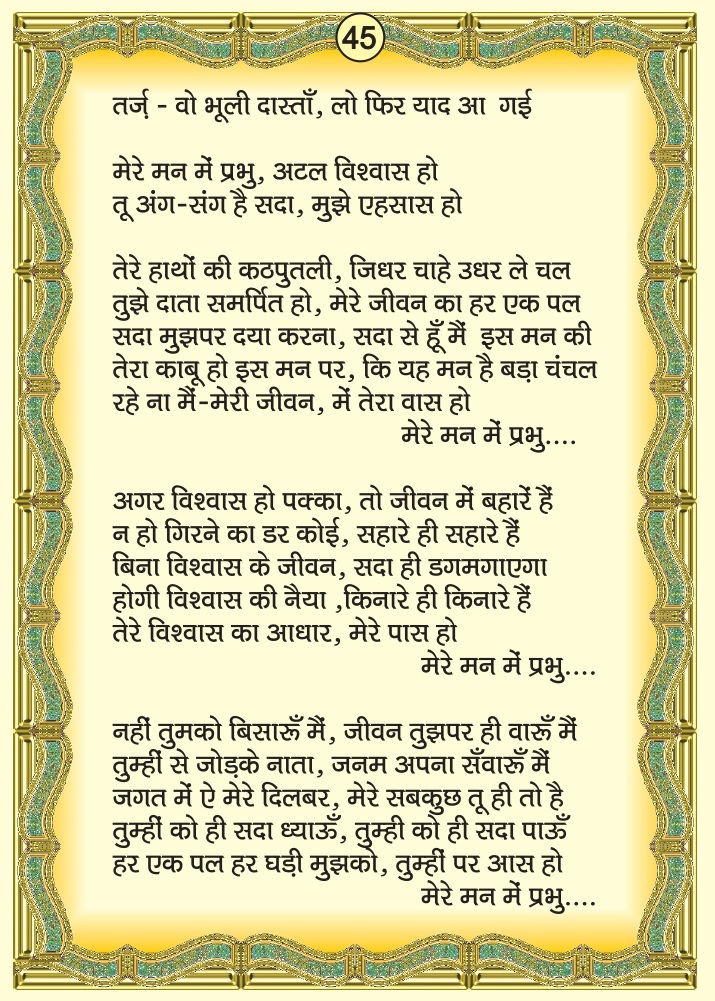 45
तर्ज़ - वो भूली दास्ताँ, लो फिर याद आ गई
मेरे मन में प्रभु, अटल विश्वास हो
तू अंग-संग है सदा, मुझे एहसास हो
तेरे हाथों की कठपुतली, जिधर चाहे उधर ले चल
तुझे दाता समर्पित हो, मेरे जीवन का हर एक पल
सदा मुझपर दया करना, सदा से हूँ मैं इस मन की
तेरा काबू हो इस मन पर, कि यह मन है बड़ा चंचल
रहे ना मैं-मेरी जीवन, में तेरा वास हो
मेरे मन में प्रभु....
अगर विश्वास हो पक्का, तो जीवन में बहारें हैं
न हो गिरने का डर कोई, सहारे ही सहारे हैं
बिना विश्वास के जीवन, सदा ही डगमगाएगा
होगी विश्वास की नैया ,किनारे ही किनारे हैं
तेरे विश्वास का आधार, मेरे पास हो
मेरे मन में प्रभु....
नहीं तुमको बिसारूँ मैं, जीवन तुझपर ही वारूँ मैं
तुम्हीं से जोड़के नाता, जनम अपना सँवारूँ मैं
जगत में ऐ मेरे दिलबर, मेरे सबकुछ तू ही तो है
तुम्हीं को ही सदा ध्याऊँ, तुम्ही को ही सदा पाऊँ
हर एक पल हर घड़ी मुझको, तुम्हीं पर आस हो
मेरे मन में प्रभु....